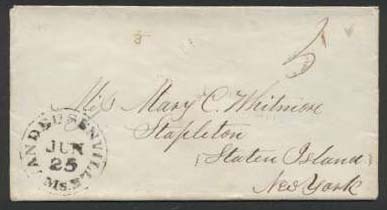 5
Miss Mary C. Whitmore
Stapleton
(Staten Island)
New York
ANDERSENVILLE
JUN
25
Ms.